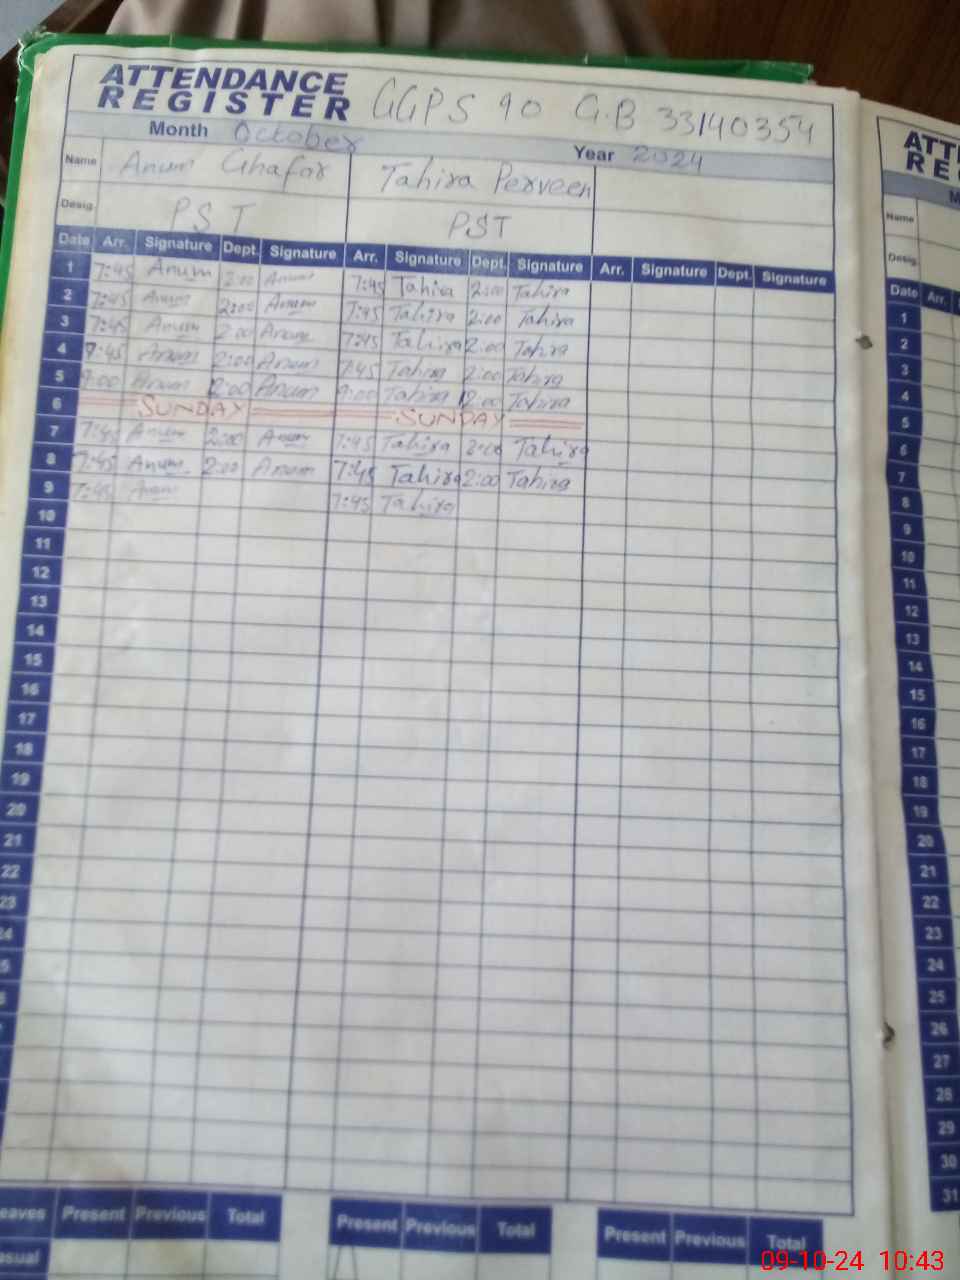 ATTENDANCE REGISTER GGPS 90 G.B 33140354
Month October Year 2024
Name Anum Ghafar Tahira Perveen
Desig. PST PST
Date Arr. Signature Dept. Signature Arr. Signature Dept. Signature Arr. Signature Dept. Signature
1 7:45 Anum 2:00 Anum 7:45 Tahira 2:00 Tahira
2 7:45 Anum 2:00 Anum 7:45 Tahira 2:00 Tahira
3 7:45 Anum 2:00 Anum 7:45 Tahira 2:00 Tahira
4 7:45 Anum 2:00 Anum 7:45 Tahira 2:00 Tahira
5 9:00 Anum 12:00 Anum 9:00 Tahira 12:00 Tahira
6 SUNDAY SUNDAY
7 7:45 Anum 2:00 Anum 7:45 Tahira 2:00 Tahira
8 7:45 Anum 2:00 Anum 7:45 Tahira 2:00 Tahira
9 7:45 Anum 7:45 Tahira
10
11
12
13
14
15
16
17
18
19
20
21
22
23
Present Previous Total Present Previous Total Present Previous Total
Name
Desig.
Date Arr.
1
2
3
4
5
6
7
8
9
10
11
12
13
14
15
16
17
18
19
20
21
22
23
24
25
26
27
28
29
30
31
09-10-24 10:43